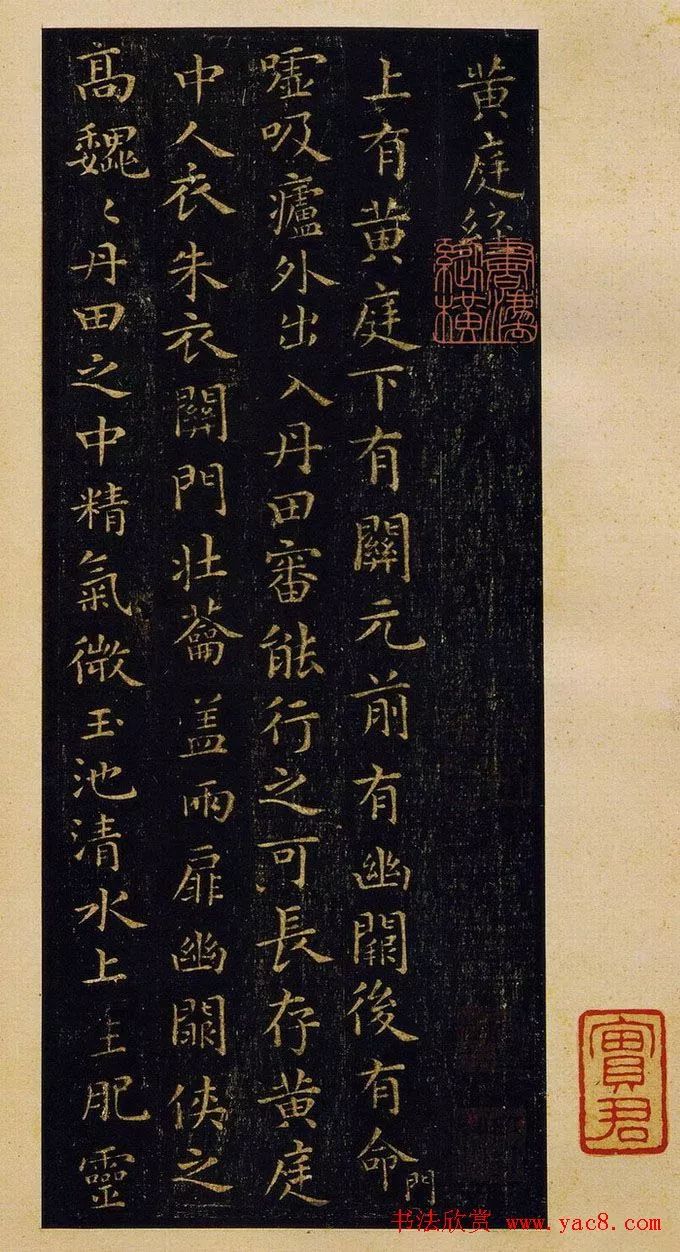 黄庭經
上有黄庭下有關元前有幽闕後有命門
嘘吸廬外出入丹田審能行之可長存黄庭
中人衣朱衣關門壯蘥盖兩扉幽闕俠之
高魏〻丹田之中精氣微玉池清水上生肥靈
書法縱橫
寶君
书法欣赏 www.yac8.com